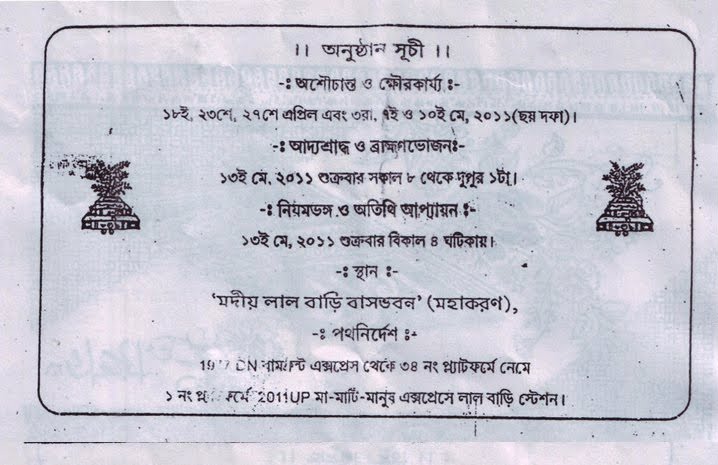 ।। অনুষ্ঠান সূচী ।।
-ঃ অশৌচান্ত ও ক্ষৌরকার্য্য ঃ-
১৮ই, ২৩শে, ২৭শে এপ্রিল এবং ৩রা, ৭ই ও ১০ই মে, ২০১১(ছয় দফা)।
-ঃ আদ্যশ্রাদ্ধ ও ব্রাহ্মণভোজনঃ-
১৩ই মে, ২০১১ শুক্রবার সকাল ৮ থেকে দুপুর ১টা।
-ঃ নিয়মভঙ্গ ও অতিথি আপ্যায়ন ঃ-
১৩ই মে, ২০১১ শুক্রবার বিকাল ৪ ঘটিকায়।
-ঃ স্থান ঃ-
‘মদীয় লাল বাড়ি বাসভবন’ (মহাকরণ),
-ঃ পথনির্দেশ ঃ-
DN বামফ্রন্ট এক্সপ্রেস থেকে ৩৪ নং প্ল্যাটফর্মে নেমে
১ নং 2011UP মা-মাটি-মানুষ এক্সপ্রেসে লাল বাড়ি স্টেশন।